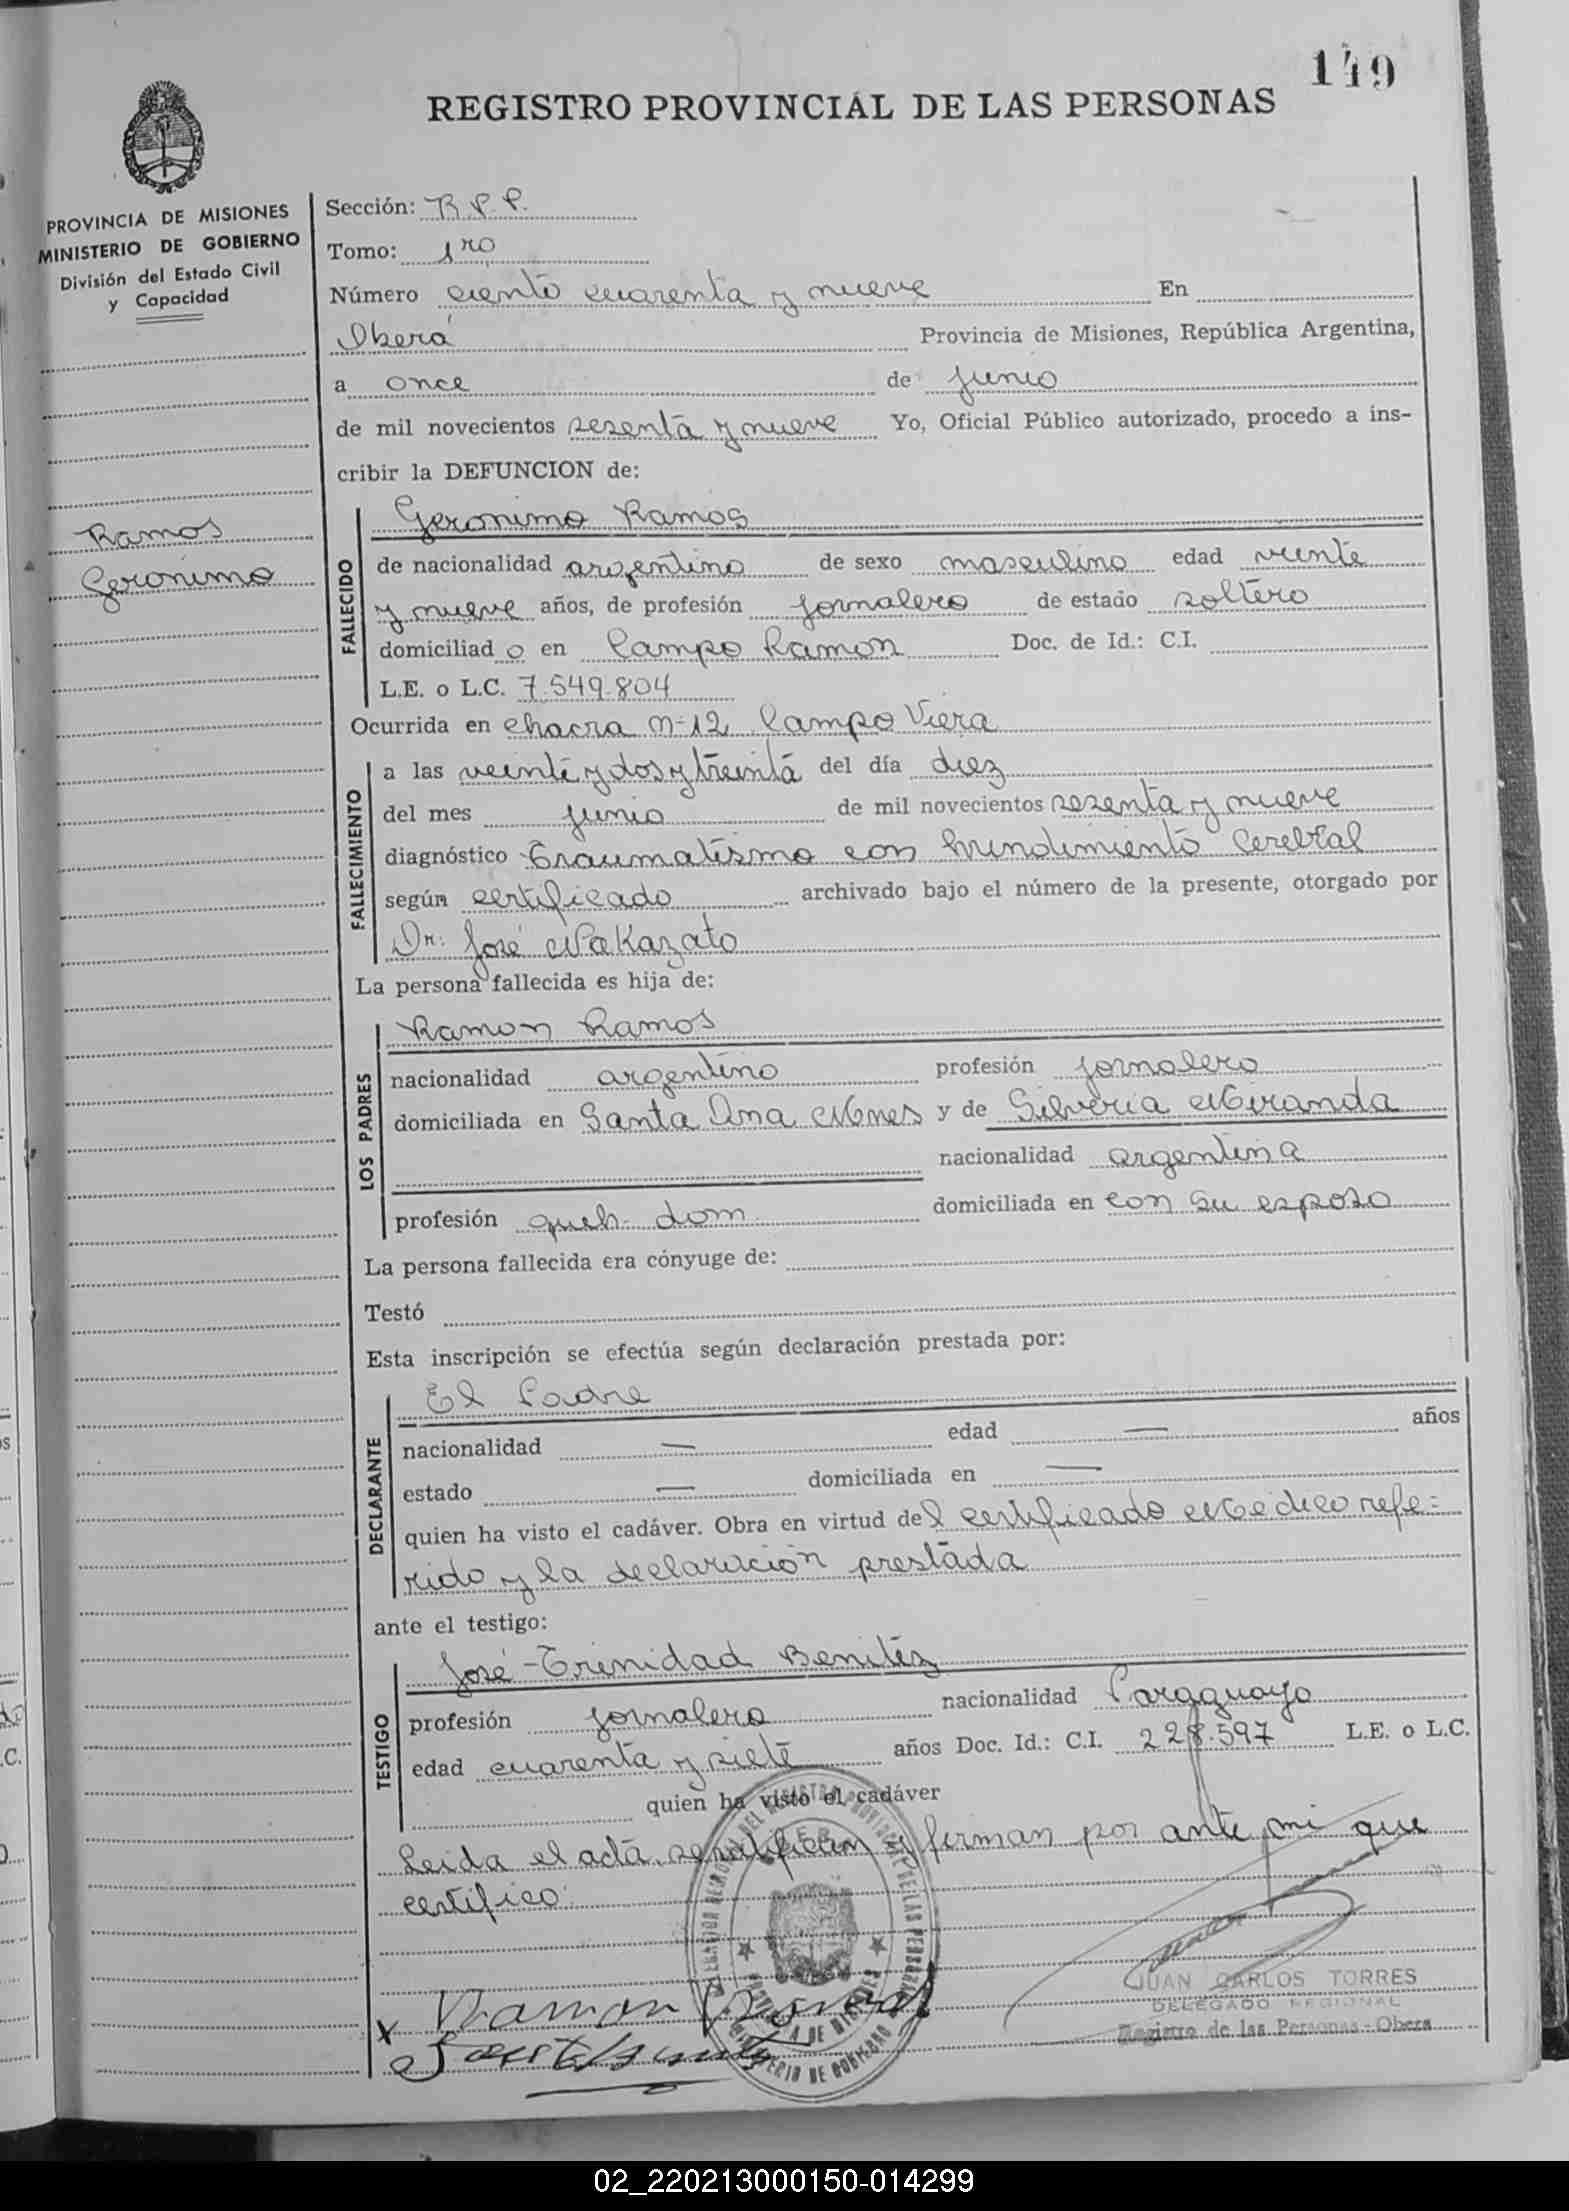 149
REGISTRO PROVINCIAL DE LAS PERSONAS
PROVINCIA DE MISIONES
MINISTERIO DE GOBIERNO
División del Estado Civil
y Capacidad
Ramos
Geronimo
Sección: R.P.P.
Tomo: 1ro
Número ciento cuarenta y nueve En
Oberá Provincia de Misiones, República Argentina,
a once de junio
de mil novecientos sesenta y nueve Yo, Oficial Público autorizado, procedo a ins-
cribir la DEFUNCION de:
FALLECIDO
Geronimo Ramos
de nacionalidad argentino de sexo masculino edad veinte
y nueve años, de profesión jornalero de estado soltero
domiciliado en Campo Ramon Doc. de Id.: C.I.
L.E. o L.C. 7.549.804
Ocurrida en chacra n-12 Campo Viera
FALLECIMIENTO
a las veinte y dos y treinta del día diez
del mes junio de mil novecientos sesenta y nueve
diagnóstico Traumatismo con hundimiento Cerebral
según certificado archivado bajo el número de la presente, otorgado por
Dr: José Nakazato
La persona fallecida es hija de:
LOS PADRES
Ramon Ramos
nacionalidad argentino profesión jornalero
domiciliada en Santa Ana Mnes y de Silveria Miranda
nacionalidad argentina
profesión queh. dom. domiciliada en con su esposo
La persona fallecida era cónyuge de:
Testó
Esta inscripción se efectúa según declaración prestada por:
DECLARANTE
El Padre
nacionalidad — edad — años
estado — domiciliada en —
quien ha visto el cadáver. Obra en virtud del certificado Médico refe=
rido y la declaración prestada
ante el testigo:
TESTIGO
José Trinidad Benitéz
profesión jornalero nacionalidad Paraguayo
edad cuarenta y siete años Doc. Id.: C.I. 228.597 L.E. o L.C.
quien ha visto el cadáver
Leida el acta, se ratifican y firman por ante mi que
certifico.
JUAN CARLOS TORRES
DELEGADO REGIONAL
Registro de las Personas - Obera
x Ramon
02_220213000150-014299